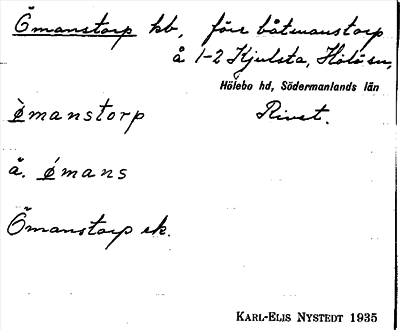 Ömanstorp hb, förr båtmanstorp
å 1-2 Kjulsta, Hölö sn,
Hölebo hd, Södermanlands län
Rivet.
ö̀manstorp
å. ǿmans
Ömanstorp ek.
KARL-ELIS NYSTEDT 1935